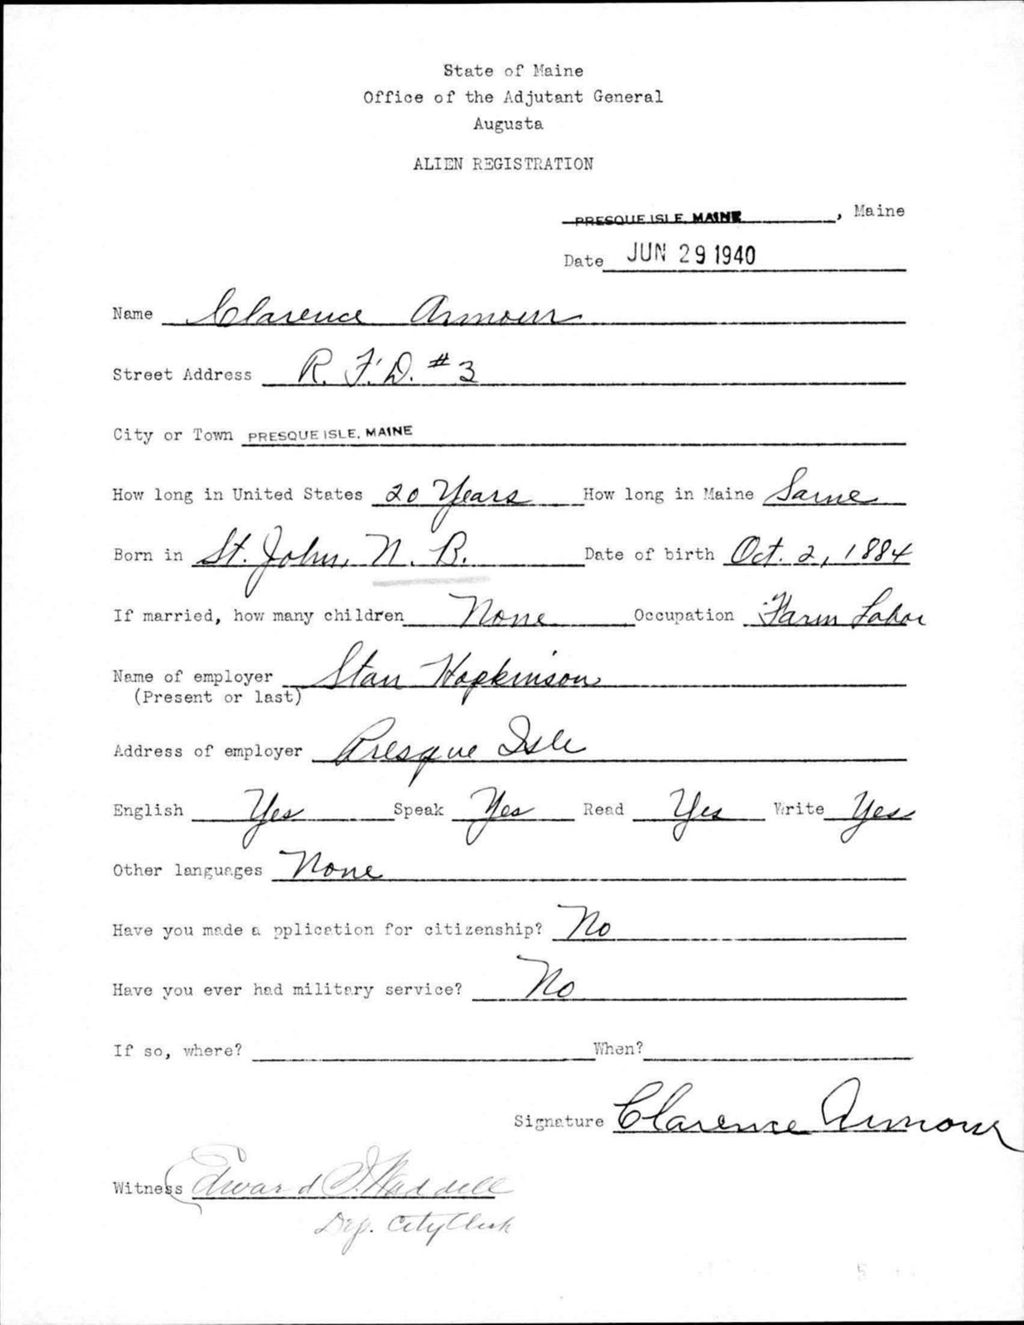 State of Maine
Office of the Adjutant General
Augusta
ALIEN REGISTRATION
PRESQUE ISLE, MAINE, Maine
Date JUN 29 1940
Name Clarence Armour
Street Address R. F. D. #3
City or Town PRESQUE ISLE, MAINE
How long in United States 20 Years How long in Maine Same
Born in St. John, N. B. Date of birth Oct. 2, 1884
If married, how many children None Occupation Farm Labor
Name of employer Stan Hopkinson
(Present or last)
Address of employer Presque Isle
English Yes Speak Yes Read Yes Write Yes
Other languages None
Have you made a pplication for citizenship? No
Have you ever had military service? No
If so, where? When?
Signature Clarence Armour
Witness Edward I. Waddell
Dep. City Clerk